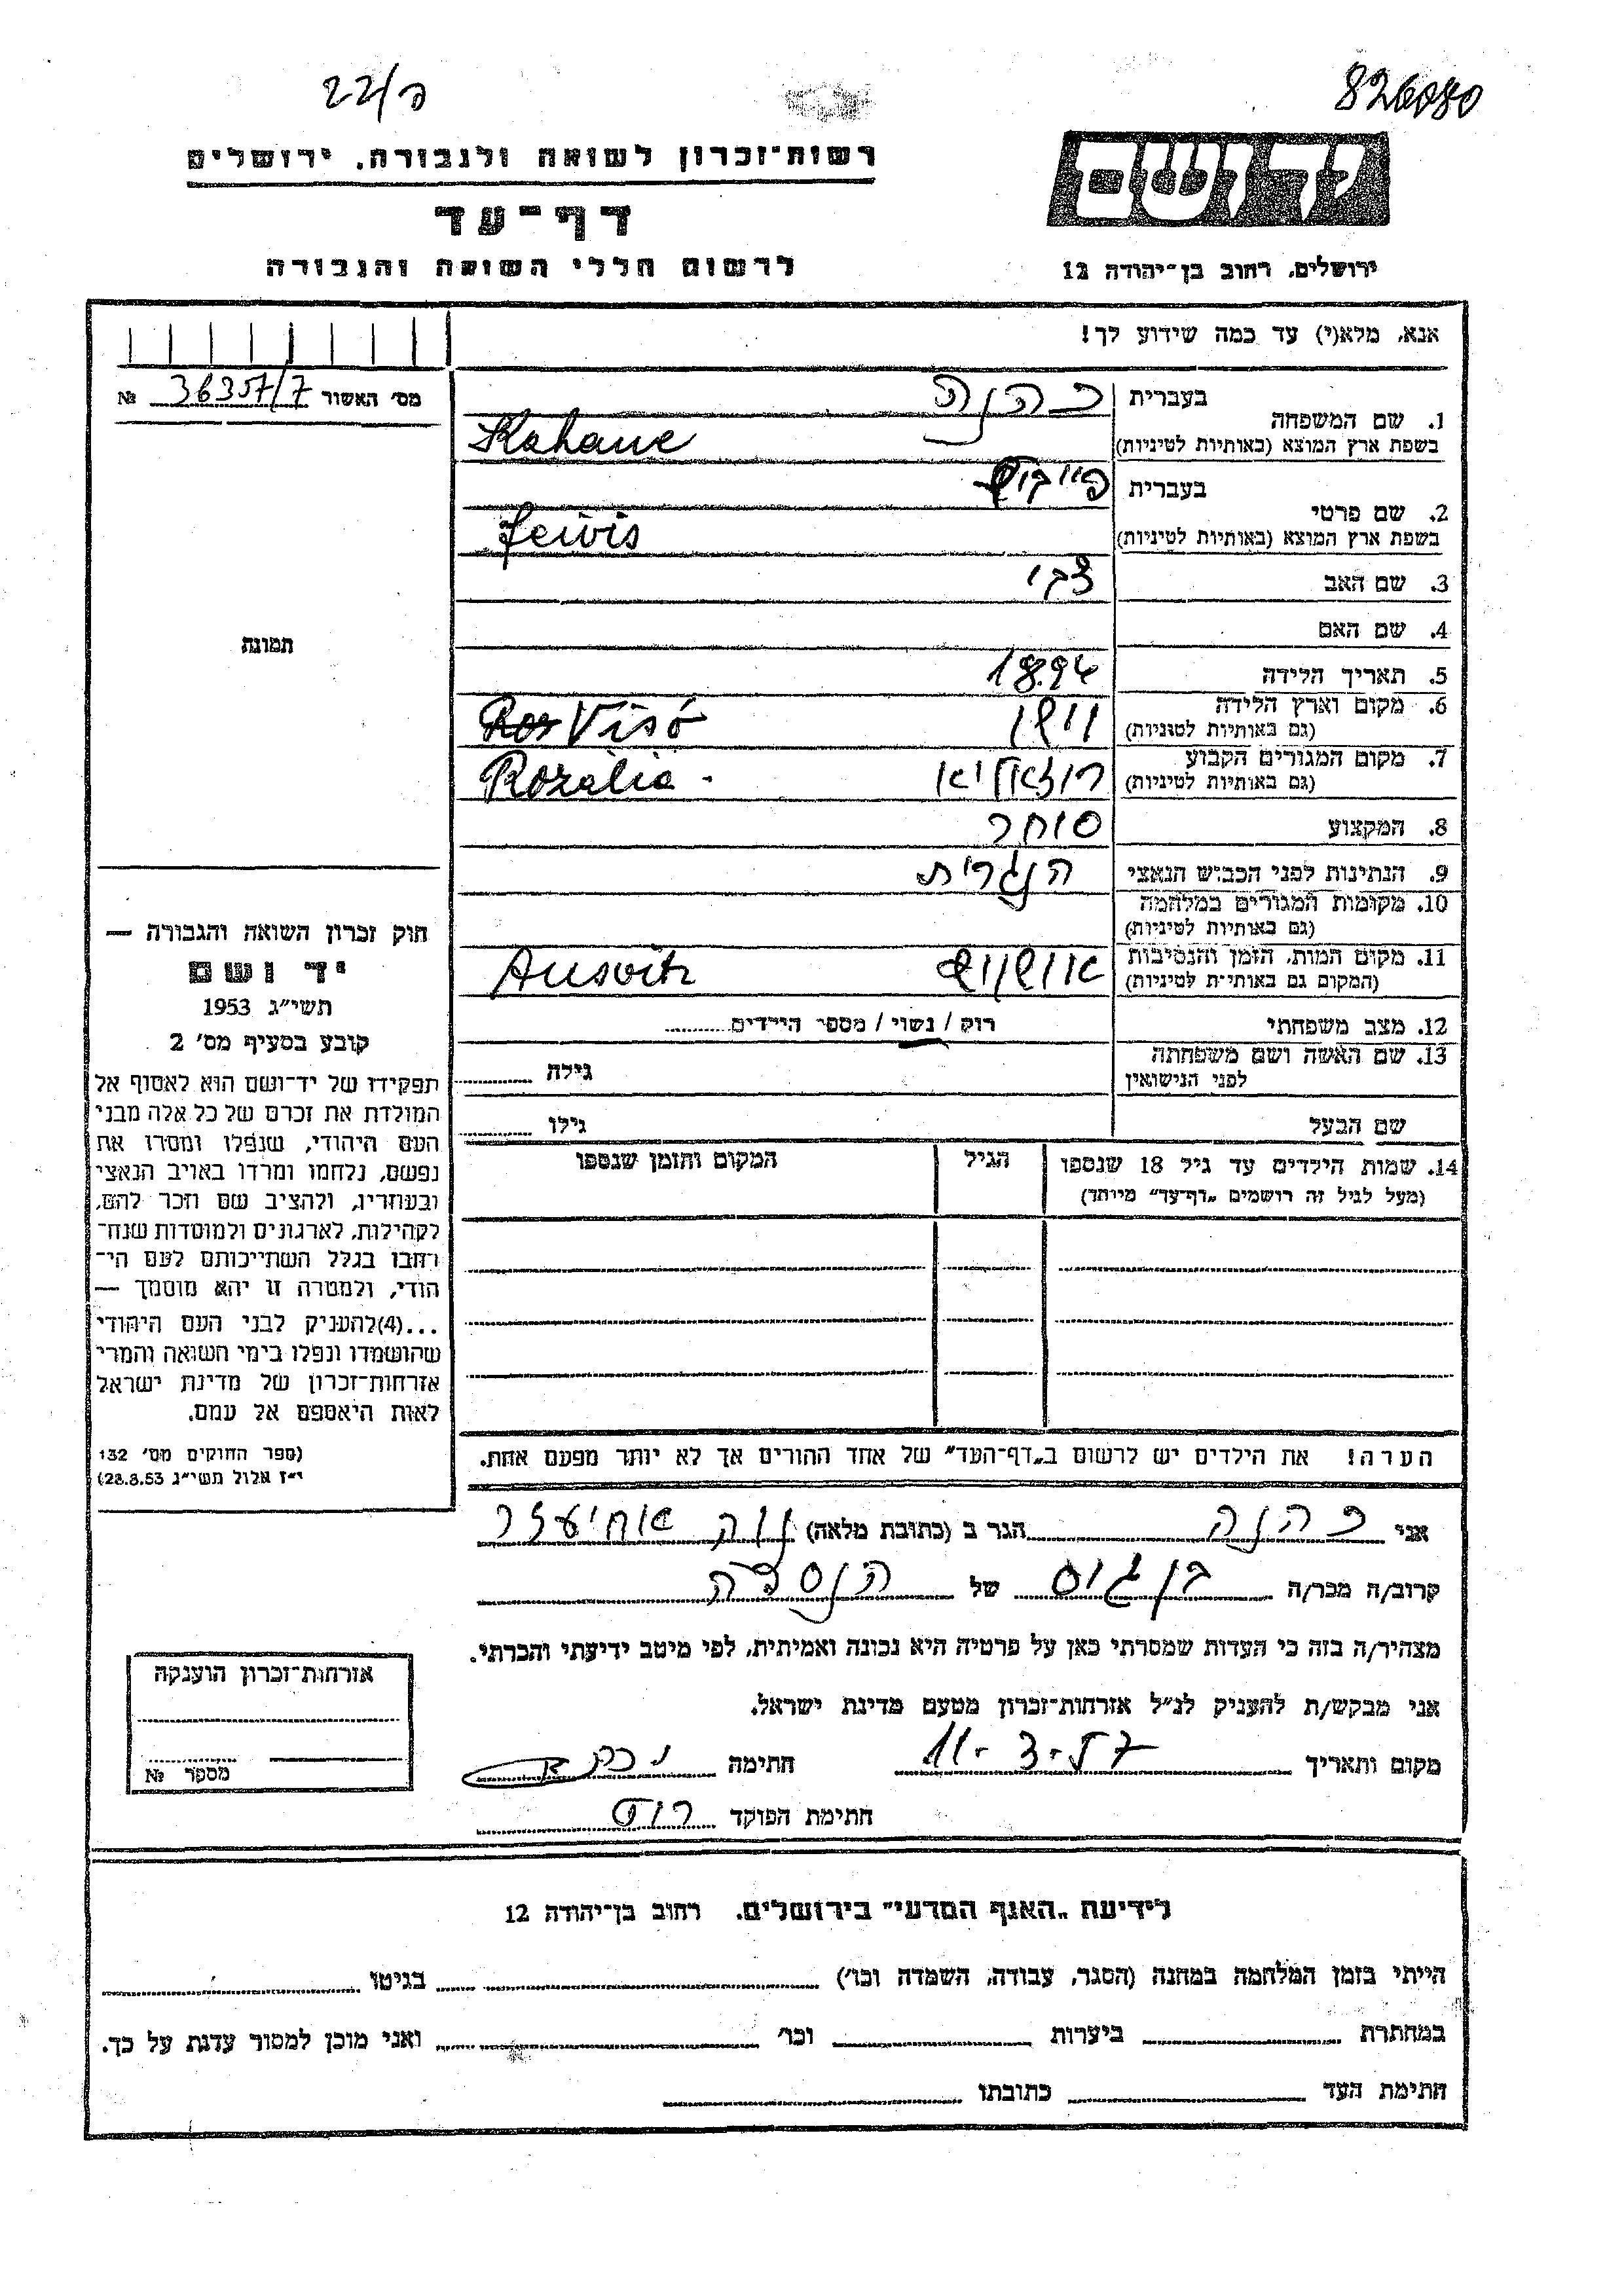 כ/22
826080
יד ושם
רשות־זכרון לשואה ולגבורה, ירושלים
דף־עד
לרשום חללי השואה והגבורה
ירושלים, רחוב בן־יהודה 12
אנא, מלא(י) עד כמה שידוע לך!
מס׳ האשור 36357/7 №
1. שם המשפחה
בעברית כהנה
בשפת ארץ המוצא (באותיות לטיניות) Kahane
2. שם פרטי
בעברית פייבוש
בשפת ארץ המוצא (באותיות לטיניות) Feivis
3. שם האב צבי
4. שם האם
5. תאריך הלידה 1894
6. מקום וארץ הלידה
(גם באותיות לטיניות) וישו Visó
7. מקום המגורים הקבוע
(גם באותיות לטיניות) רוזאליא Rozália
8. המקצוע סוחר
9. הנתינות לפני הכבוש הנאצי הנגרית
10. מקומות המגורים במלחמה
(גם באותיות לטיניות)
11. מקום המות, הזמן והנסיבות
(המקום גם באותיות לטיניות) אושוויץ Ausvitz
12. מצב משפחתי רוק / נשוי / מספר הילדים
13. שם האשה ושם משפחתה
לפני הנישואין גילה
שם הבעל גילו
14. שמות הילדים עד גיל 18 שנספו הגיל המקום והזמן שנספו
(מעל לגיל זה רושמים „דף־עד” מיוחד)
הערה! את הילדים יש לרשום ב„דף־העד” של אחד ההורים אך לא יותר מפעם אחת.
תמונה
חוק זכרון השואה והגבורה —
יד ושם
תשי״ג 1953
קובע בסעיף מס׳ 2
תפקידו של יד־ושם הוא לאסוף אל
המולדת את זכרם של כל אלה מבני
העם היהודי, שנפלו ומסרו את
נפשם, נלחמו ומרדו באויב הנאצי
ובעוזריו, ולהציב שם וזכר להם,
לקהילות, לארגונים ולמוסדות שנח־
רבו בגלל השתייכותם לעם הי־
הודי, ולמטרה זו יהא מוסמך —
...(4) להעניק לבני העם היהודי
שהושמדו ונפלו בימי השואה והמרי
אזרחות־זכרון של מדינת ישראל
לאות היאספם אל עמם.
(ספר החוקים מס׳ 132
י״ז אלול תשי״ג 28.8.53)
אני כהנה הגר ב (כתובת מלאה) אחיעזר
קרוב/ה מכר/ה בן גיס של הנספה
מצהיר/ה בזה כי העדות שמסרתי כאן על פרטיה היא נכונה ואמיתית, לפי מיטב ידיעתי והכרתי.
אני מבקש/ת להעניק לנ״ל אזרחות־זכרון מטעם מדינת ישראל.
מקום ותאריך 11-3-57 חתימה
חתימת הפוקד
אזרחות־זכרון הוענקה
מספר №
לידיעת „האגף המדעי” בירושלים, רחוב בן־יהודה 12
הייתי בזמן המלחמה במחנה (הסגר, עבודה, השמדה וכו׳) בגיטו
במחתרת ביערות וכו׳ ואני מוכן למסור עדות על כך.
חתימת העד כתובתו